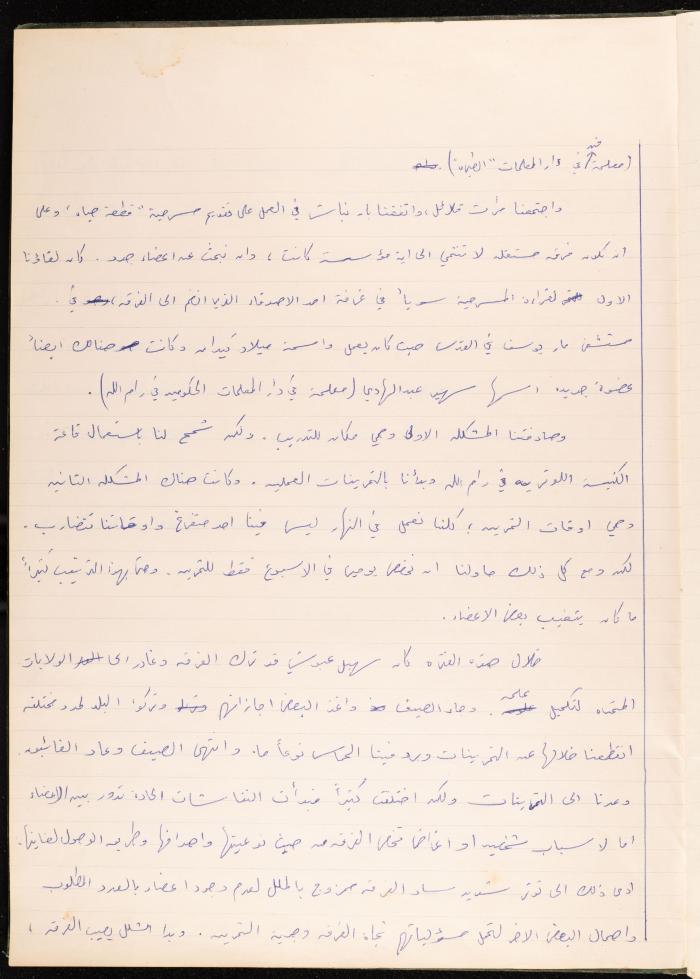 (معلمة فنية في دار المعلمات "الطيرة").
واجتمعنا مرات قلائل، واتفقنا بأن نباشر في العمل على تقديم مسرحية "قطعة حياه"، وعلى
ان نكون فرقه مستقله لا تنتمي الى اية مؤسسة كانت، وان نبحث عن اعضاء جدد. كان لقاؤنا
الاول لقراءة المسرحية سوياً في غرفة احد الاصدقاء الذي انضم الى الفرقه، في
مستشفى مار يوسف في القدس حيث كان يعمل واسمه ميلاد كيدان وكانت هنالك ايضاً
عضوة جديده اسمها سهير عبد الهادي (معلمة في دار المعلمات الحكوميه في رام الله).
وصادفتنا المشكله الاولى وهي مكان للتدريب. ولكن سُمح لنا باستعمال قاعة
الكنيسة اللوثريه في رام الله وبدأنا بالتمرينات العمليه. وكانت هناك المشكله الثانيه
وهي اوقات التمرين، كلنا نعمل في النهار ليس فينا احد متفرغ واوقاتنا تتضارب.
لكن ومع كل ذلك حاولنا ان نخصص يومين في الاسبوع فقط للتمرين. وحتى بهذا الترتيب كثيراً
ما كان يتغيب بعض الاعضاء.
خلال هذه الفتره كان سهيل عبوشي قد ترك الفرقه وغادر الى الولايات
المتحده لتكميل علمه. وجاء الصيف واخذ البعض اجازاتهم وتركوا البلد لمدد مختلفه
انقطعنا خلالها عن التمرينات وبرد فينا الحماس نوعاً ما. وانتهى الصيف وعاد الغائبون
وعدنا الى التمرينات ولكن اختلفت كثيراً فبدأت النقاشات الحاده تدور بين الاعضاء
اما لاسباب شخصيه او اغراض تخص الفرقه من حيث نوعيتها واهدافها وطريقه الوصول لغايتها.
ادى ذلك الى توتر شديد ساد الفرقه ممزوج بالملل لعدم وجود اعضاء بالعدد المطلوب
واهمال البعض الاخر لتحمل مسؤولياتهم تجاه الفرقه وجدية التمرين. وبدا الشلل يصيب الفرقه،